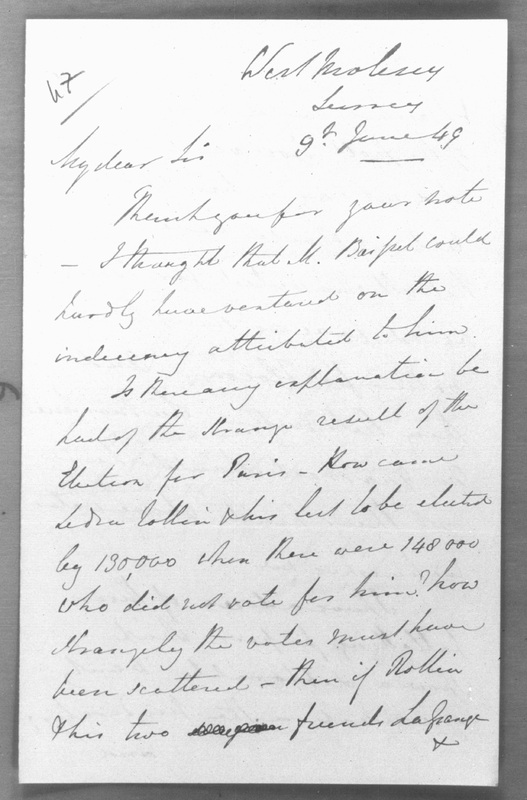 47
West Molesey
Surrey
9th June 49
My dear Sir
Thank you for your note
- I thought that M. could
hardly have ventured on the
indecency attributed to him.
Is there any explanation be
had of the strange result of the
Election for Paris - How came
Ledru Rollin & his list to be elected
by 130,000 when there were 148000
who did not vote for him? how
strangely the votes must have
been scattered - then if Rollin
& his two friends Lagrange
&